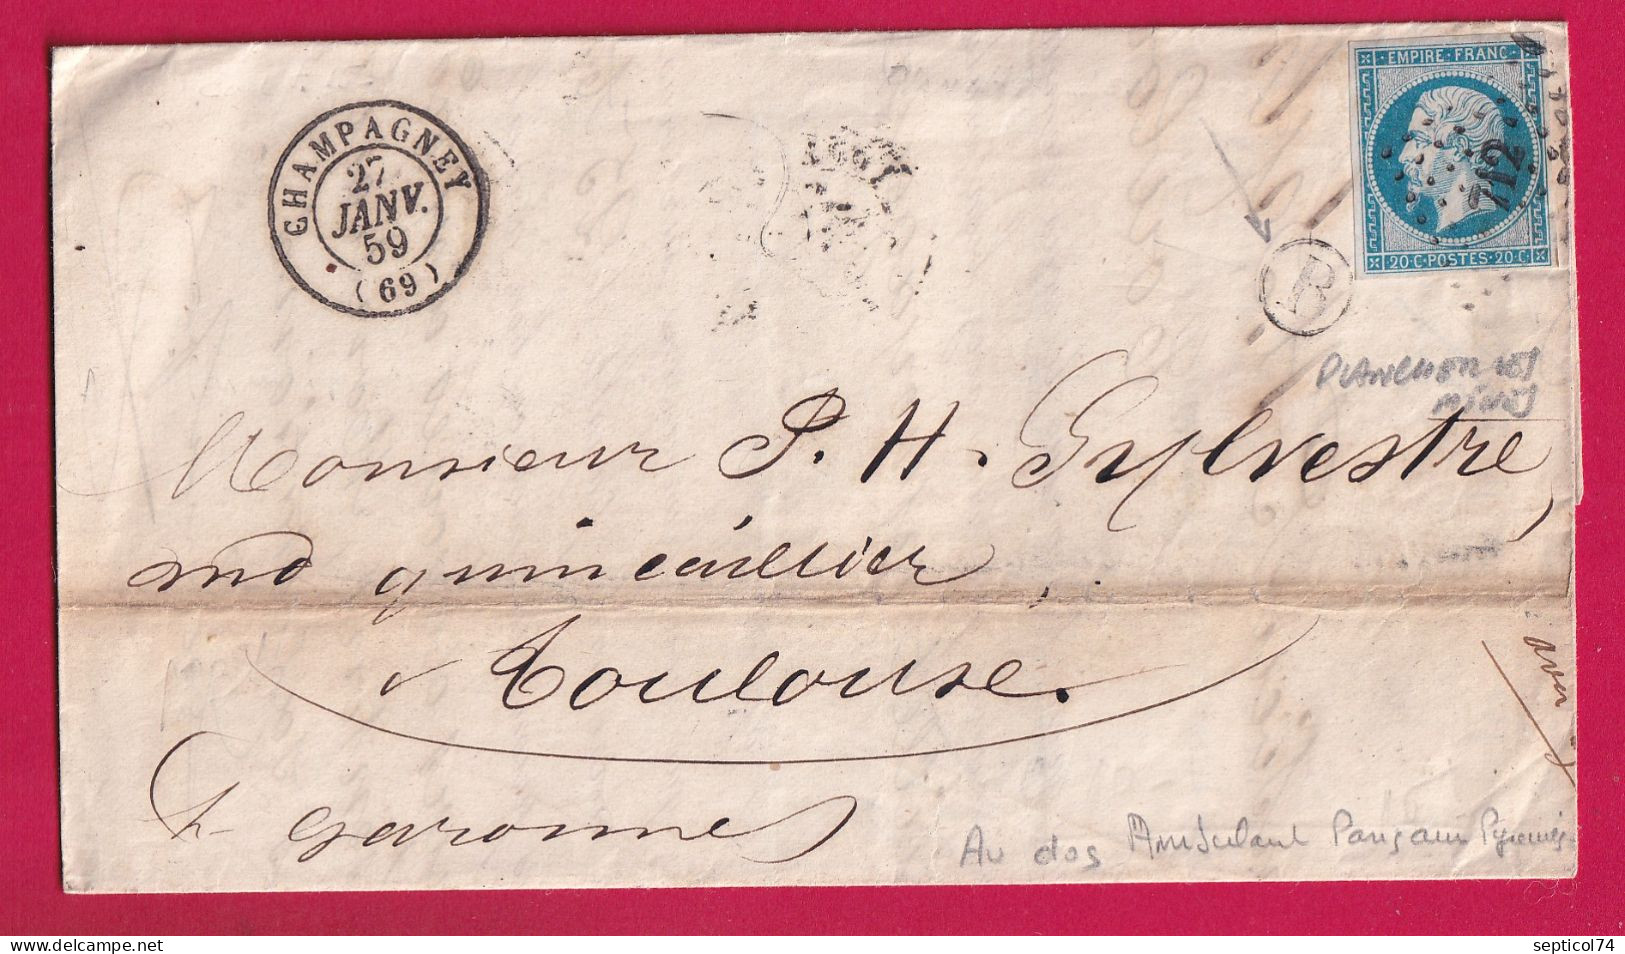 CHAMPAGNEY
27
JANV.
59
(69)
EMPIRE FRANC
712
20·C·POSTES·20·C
B
PLANCHER LES
MINES
Monsieur P. H. Sylvestre
md quincaillier,
Toulouse.
hte garonne
Au dos Ambulant Paris aux Pyrénées
septicol74